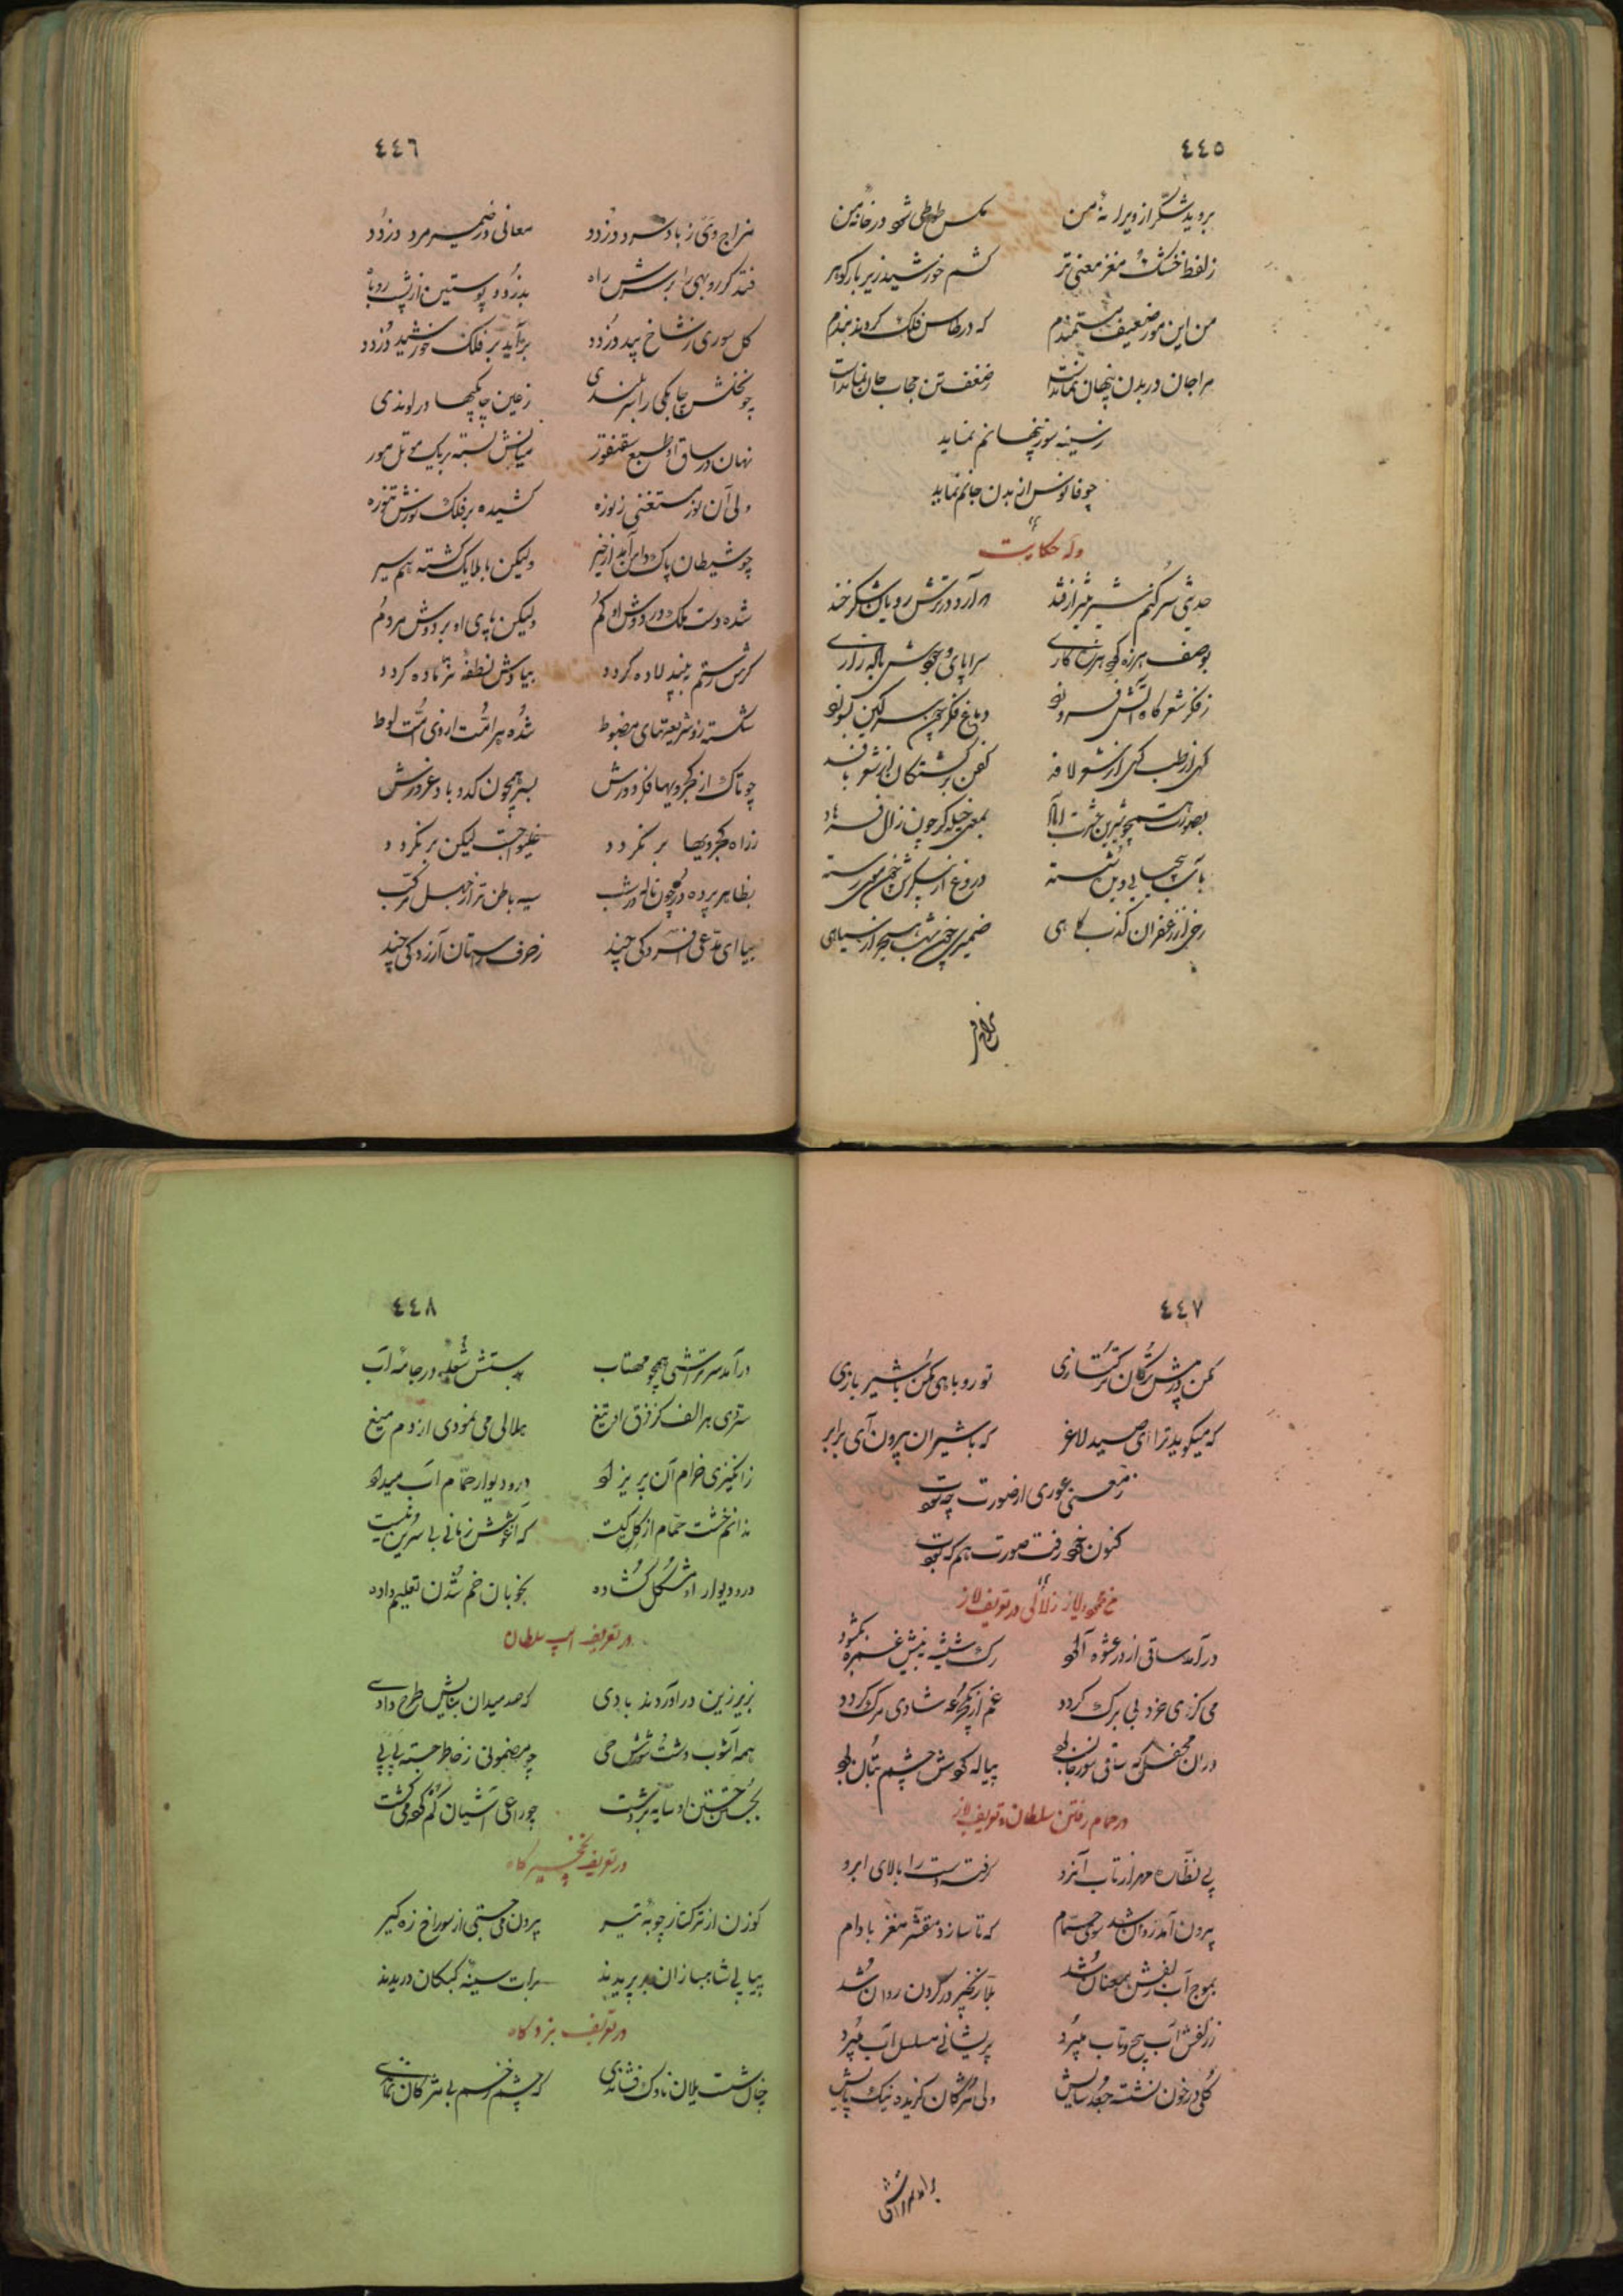 ٤٤٥
بروید شکر از ویرانهٔ من مگس طوطی شود در خانهٔ من
ز لفظ خشک مغز معنی تر کشم خورشید زیر بار گوهر
من این مور ضعیف مستمندم که در طاس فلک کردند بندم
مرا جان در بدن پنهان نماندست ز ضعف تن حجاب جان نماندست
ز سینه سوز پنهانم نماید
چو فانوس از بدن جانم نماید
وله حکایت
حدیثی سر کنم شیرین‌تر از قند
بوصف هرزه کاری سراپای وجودش
ز فکر شعر گاه آتش فروز دماغ فکر
گهی از طب گهی از شعر لافد کفن بر کشتگان از شعر بافد
بصورت همچو شیرین بمعنی حیله‌گر چون زال
دروغ از
رخی از زعفران کذب کاهی ضمیری چون شب هجر از سیاهی
٤٤٦
مزاج وی ز باد سرد دزدد معانی در ضمیر مرد دزدد
فتد گر روبهی را بر سرش راه بدزدد پوستین از پشت روباه
گل سوری ز شاخ بید دزدد برآید بر فلک خورشید دزدد
چو نخلش چابکی را سربلندی ز عین چابکیها در لوندی
نهان در ساق او طبع سقنقور میانش بسته بر یک مو تل مور
ولی آن نوز مستغنی ز نوزه کشیده بر فلک نوزش تنوزه
چو شیطان پاک دامن آمد از خیر ولیکن با ملایک گشته هم سیر
شده دست ملک در دوش او گم ولیکن پای او بر دوش مردم
گرش رستم ببیند لاده گردد بیادش نطفهٔ نر ماده گردد
شکسته زو شریعتهای مضبوط شده هر امت از وی امت لوط
چو تاک از کجرویها فکر دورش بسر همچون کدو باد غرورش
ز راه کجرویها بر نگردد غلیواجست لیکن بر نگردد
بظاهر پرده در چون نالهٔ شب سیه باطن‌تر از جهل مرکب
بیا ای مدعی افسردگی چند ز حرف راستان آزردگی چند
٤٤٧
مکن در پیش ترکان ترکتازی تو روباهی مکن با شیر بازی
که میگوید ترا ای صید لاغر که با شیران برون آی برابر
ز معنی عوری از صورت چه سودت
کنون خود رفت صورت هم که بودت
درآمد ساقی از در عشوه آلود رگ شیشه بنیش غمزه بگشود
می کز وی خرد بی برگ گردد غم از یک جرعه شادی مرگ گردد
در آن محفل که ساقی سوز جان بود پیاله گوش چشم بتان بود
در حمام رفتن سلطان و تعریف ایاز
پی نظاره مهر از تاب آن رو گرفته دست را بالای ابرو
برون آمد روان شد سوی حمام که تا سازد مقشر مغز بادام
بموج آب زلفش همعنان شد بلا زنجیر در گردن روان شد
ز زلفش آب پیچ و تاب میبرد پریشانی مسلسل آب میبرد
گلی در خون نشسته ولی مژگان گزیده نیک پایش
درآمد سرتراشی
٤٤٨
درآمد سرتراشی همچو مهتاب بدستش شعلهٔ در جامهٔ آب
ستردی هر الف کز فرق او تیغ هلالی می نمودی از دم میغ
ز انگیزی خرام آن پریزاد در و دیوار حمام آب میداد
ندانم خشت حمام از گل کیست که آغوشش زمانی بی سرین نیست
در و دیوار او مشکل گشاده بخوبان خم شدن تعلیم داده
در تعریف اسب سلطان
بزیر زین درآوردند بادی که صد میدان بتابش طرح دادی
همه آشوب دشت و شورش حی چو مضمونی ز خاطر جسته پی پی
بجستن جستن او سایه بر دشت چو زاغ آشیان گم کرده می گشت
در تعریف نخجیرگاه
گوزن از ترکتاز چوبهٔ تیر برون می جستی از سوراخ زه گیر
پیاپی شاهبازان پریدند برات سینهٔ کبکان دریدند
در تعریف نبردگاه
چنان شست یلان ناوک فشاندی که چشم زخم بی مژگان نماندی